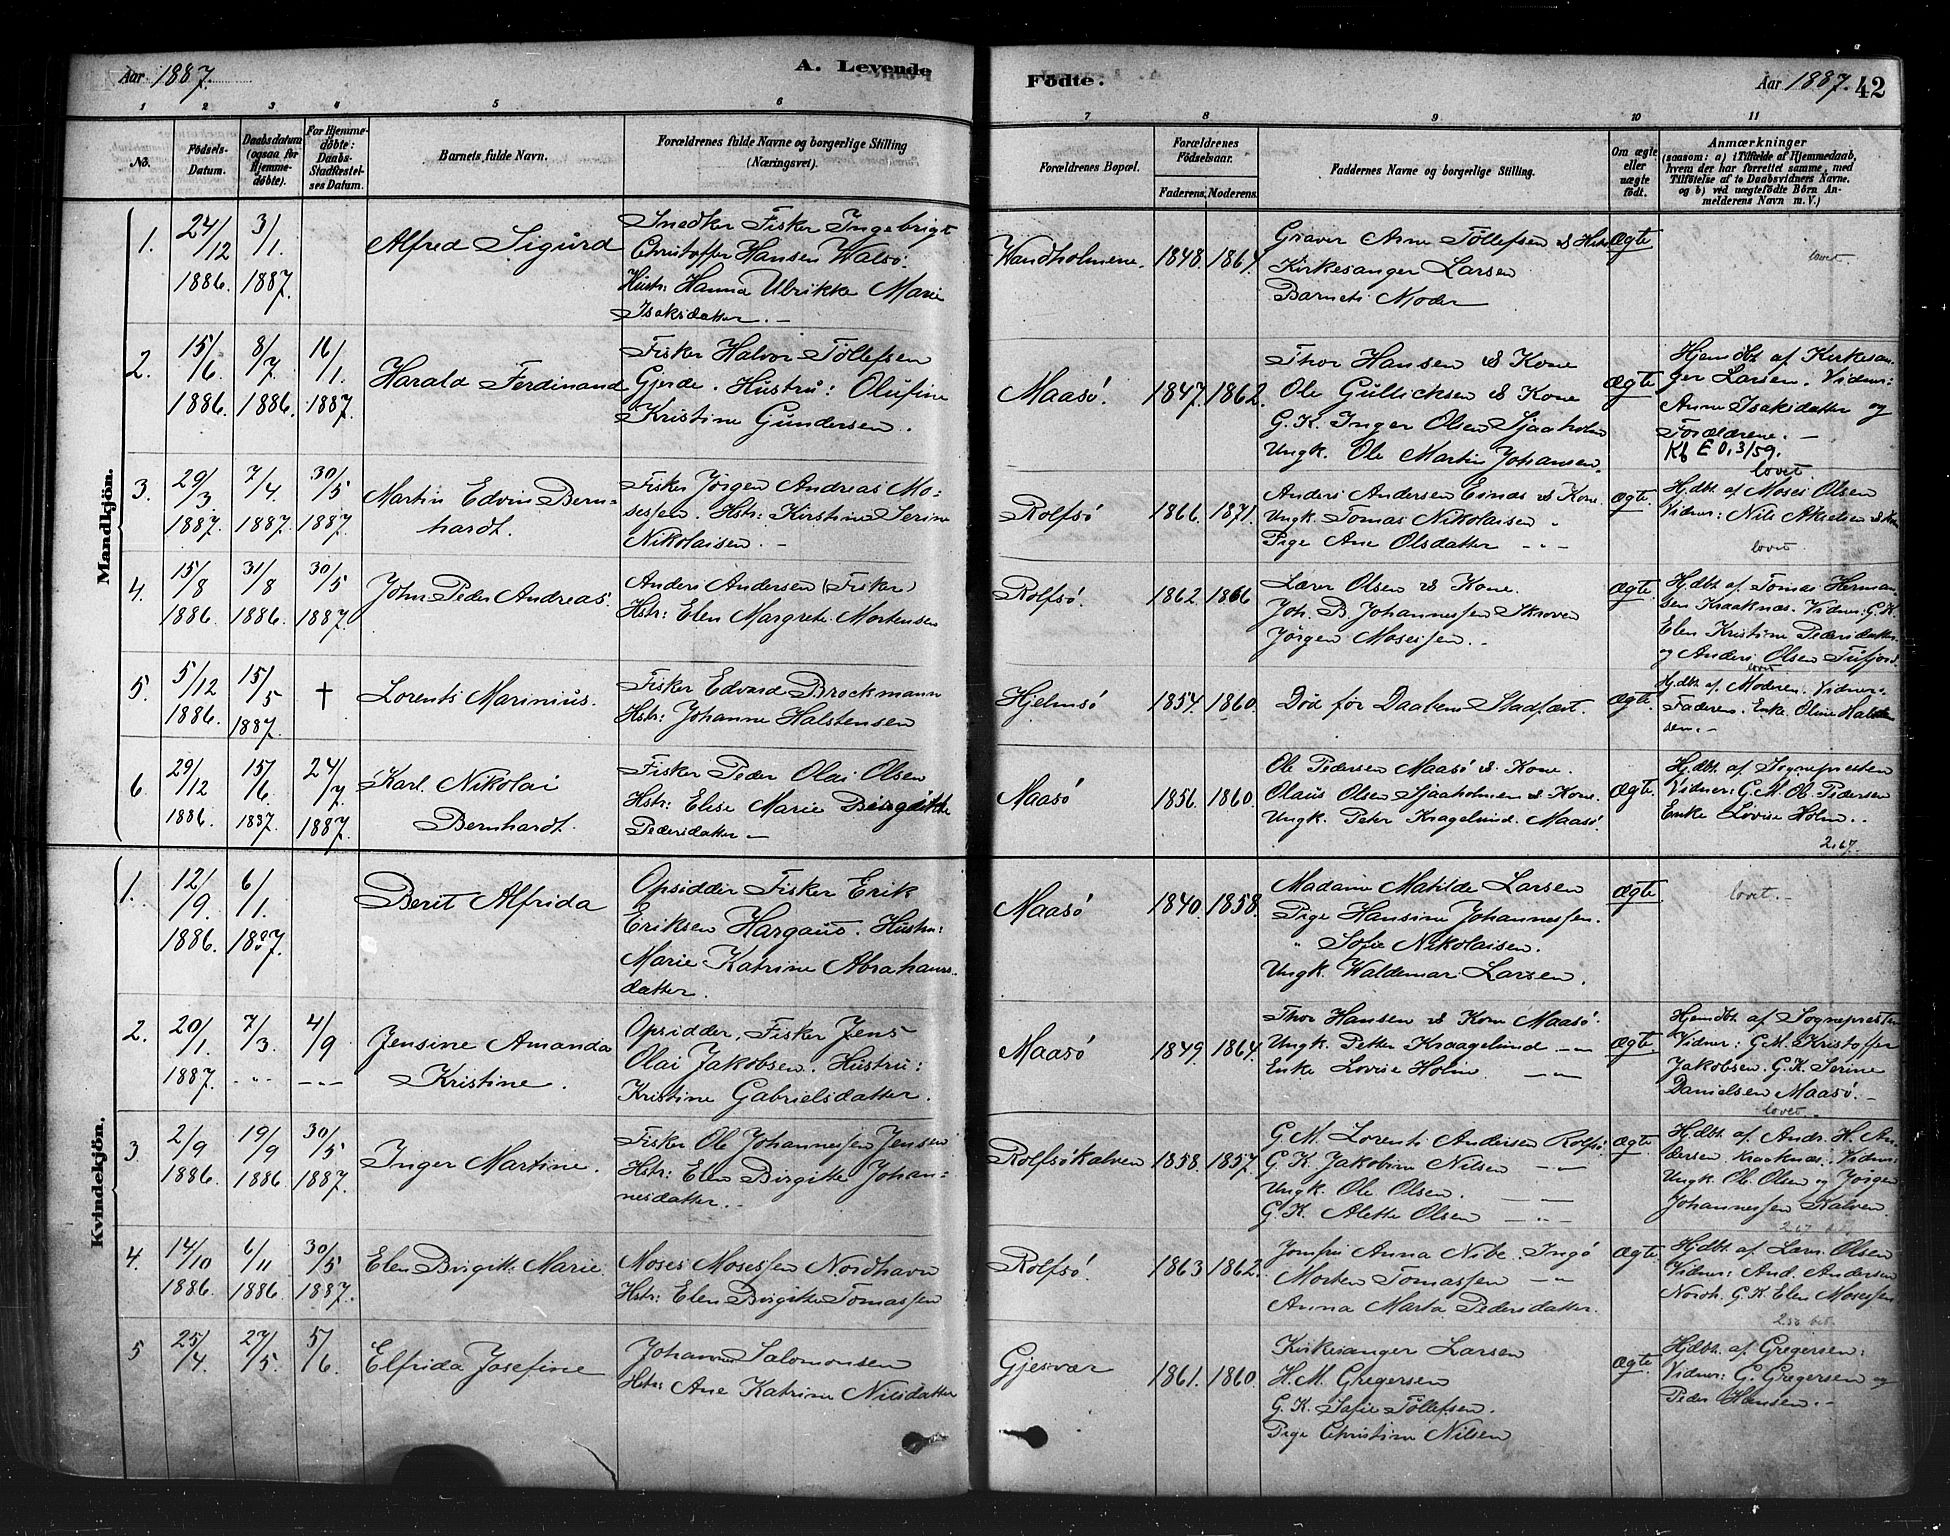 Aar 1887. A. Levende
Födte. Aar 1887. 42
1 2 3 4 5 6 7 8 9 10 11
No.
Födsels-
Datum.
Daabsdatum
(ogsaa for
Hjemme-
döbte).
For Hjemme-
döbte:
Daabs-
Stadfæstel-
ses Datum.
Barnets fulde Navn.
Forældrenes fulde Navne og borgerlige Stilling
(Næringsvei).
Forældrenes Bopæl.
Forældrenes
Födselsaar.
Faderens. Moderens.
Faddernes Navne og borgerlige Stilling.
Om ægte
eller
uægte
födt.
Anmærkninger
(saasom: a) i Tilfælde af Hjemmedaab,
hvem der har forrettet samme, med
Tilföielse af to Daabsvidners Navne.
og b) ved uægtefödte Börn An-
melderens Navn m. V.)
Mandkjön.
1. 24/12 1886. 3/1. 1887.
Alfred Sigurd
Snedker Fisker Ingebrigt
Christoffer Hansen Walsö.
Hustr: Hanna Ulrikke Marie
Isaksdatter. –
Vandholmene. 1848. 1864.
Graver Arne Töllefsen & Hstr
Kirkesanger Larsen
Barnets Moder
Ægte
lovet.
2. 15/6 1886. 8/7. 1886. 16/1. 1887.
Harald Ferdinand
Fisker Halvor Töllefsen
Gjerde. Hustru: Olufine
Kristine Gundersen.
Maasö. 1847. 1862.
Thor Hansen & Kone
Ole Gullichsen & Kone
G. K. Inger Olsen Sjaaholm
Ungk. Ole Martin Johansen.
Ægte
Hjemdbt. af Kirkesan-
ger Larsen. Vidner:
Anne Isaksdatter og
Forældrene. –
Kb E 0,3/59.
lovet
3. 29/3. 1887. 7/4. 1887. 30/5 1887.
Martin Edvin Bern-
hardt.
Fisker Jörgen Andreas Mo-
sessen. Hstr: Kirstine Serine
Nikolaisen. –
Rolfsö 1866. 1871.
Anders Andersen Eines & Kone.
Ungk. Tomas Nikolaisen "
Pige Ane Olsdatter – " –
Ægte
Hjdbt. af Moses Olsen
Vidner: Nils Akselsen & Kone
lovet.
4. 15/8 1886. 31/8 1886. 30/5 1887.
John Peder Andreas.
Anders Andersen (Fisker)
Hstr: Elen Margrete Mortensen
Rolfsö. 1862. 1866
Lærer Olsen & Kone.
Joh. B. Johannessen Skroven
Jörgen Mosessen. –
Ægte.
Hjdbt. af Tomas Herman-
sen Kraaknæs. Vidner: G. K.
Elen Kristine Pedersdatter.
og Anders Olsen Tufjord.
lovet
5. 5/12 1886. 15/5 1887. †
Lorents Marinius.
Fisker Edvard Brockmann
Hstr: Johanne Halstensen
Hjelmsö 1854. 1860.
Död för Daabens Stadfæst.
Ægte.
Hjdbt. af Moderen. Vidner.
Faderen. Enke Oline Halsten
sen. –
6. 29/12 1886. 15/6. 1887. 24/7. 1887.
Karl Nikolai
Bernhardt.
Fisker Peder Olai Olsen
Hstr: Elise Marie Birgitte
Pedersdatter –
Maasö 1856. 1860.
Ole Pedersen Maasö & Kone.
Olaus Olsen Sjaaholmen & Kone.
Ungk. Peter Kragelund. Maasö.
Ægte.
Hjdbt. af Sognepresten
Vidner: G. M. Ole Pedersen
Enke Lovise Holm..
2.67.
Kvindekjön.
1. 12/9. 1886. 6/1. 1887.
Berit Alfrida
Opsidder Fisker Erik
Eriksen Hargaus. Hustru:
Marie Katrine Abrahams-
datter.
Maasö 1840. 1858.
Madame Matilde Larsen
Pige Hansine Johannessen.
" Sofie Nikolaisen.
Ungk. Waldemar Larsen.
Ægte
lovet. –
2. 20/1. 1887. 7/3. – " – 4/9 – – –
Jensine Amanda
Kristine.
Opsidder, Fisker Jens
Olai Jakobsen. Hustru:
Kristine Gabrielsdatter.
Maasö 1849. 1864.
Thor Hansen & Kone Maasö.
Ungk. Petter Kraagelund – " –
Enke Lovise Holm – " –
Ægte.
Hjemdbt. af Sognepresten
Vidner: G. M. Kristoffer
Jakobsen. G. K. Serine
Danielsen Maasö. –
lovet.
3. 2/9 1886. 19/9 1886 30/5 1887.
Inger Martine.
Fisker Ole Johannessen Jensen
Hstr: Elen Birgitte Johan-
nesdatter. –
Rolfsökalven 1858. 1857.
G. M. Lorents Andersen Rolfsö.
G. K. Jakobine Nilsen – " –
Ungk. Ole Olsen. – –
G. K. Alette Olsen – " –
Ægte.
Hjdbt. af Andr. H. An-
dersen Kraaknæs. Vidner:
Ungk. Ole Olsen og Jörgen
Johannessen Kalven.
2.67
4. 14/10 1886. 6/11 1886. 30/5 1887.
Elen Birgitte Marie.
Moses Mosessen Nordhavn
Hstr: Elen Birgitte Tomassen
Rolfsö. 1863 1862.
Jomfru Anna Nibe. Ingö
Morten Tomassen – " –
Anna Marta Pedersdatter.
Ægte.
Hjdbt. af Lær. Olsen
Vidner: And. Andersen
Nordh. G. K. Elen Mosessen
5 25/4. 27/5. 5/6.
Elfrida Josefine
Johannes Salomonsen
Hstr: Ane Katrine Nilsdatter
Gjesvær 1861. 1860.
Kirkesanger Larsen
H. M. Gregersen
G. K. Sofie Töllefsen.
Pige Christine Nilsen
Ægte.
Hjdbt. af Gregersen:
Vidner: G. Gregersen og
Peder Hansen. –